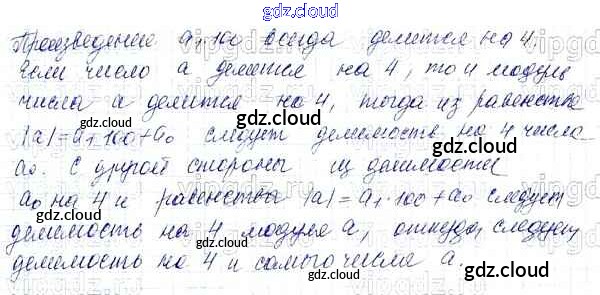 gdz.cloud
Произведение a₁·100 всегда делится на 4.
Если число a делится на 4, то и модуль
числа a делится на 4, тогда из равенства
|a|=a₁·100+a₀ следует делимость на 4 числа
a₀. С другой стороны из делимости
a₀ на 4 и равенства |a|=a₁·100+a₀ следует
делимость на 4 модуля a, откуда следует,
делимость на 4 и самого числа a.
gdz.cloud
gdz.cloud
gdz.cloud
gdz.cloud
gdz.cloud
gdz.cloud
gdz.cloud
gdz.cloud
gdz.cloud